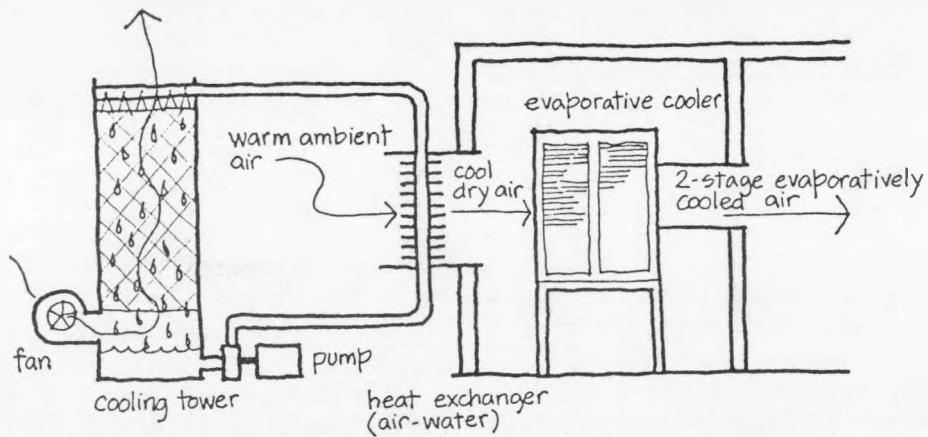 evaporative cooler
warm ambient
air
cool
dry air
2-stage evaporatively
cooled air
fan
pump
cooling tower
heat exchanger
(air-water)